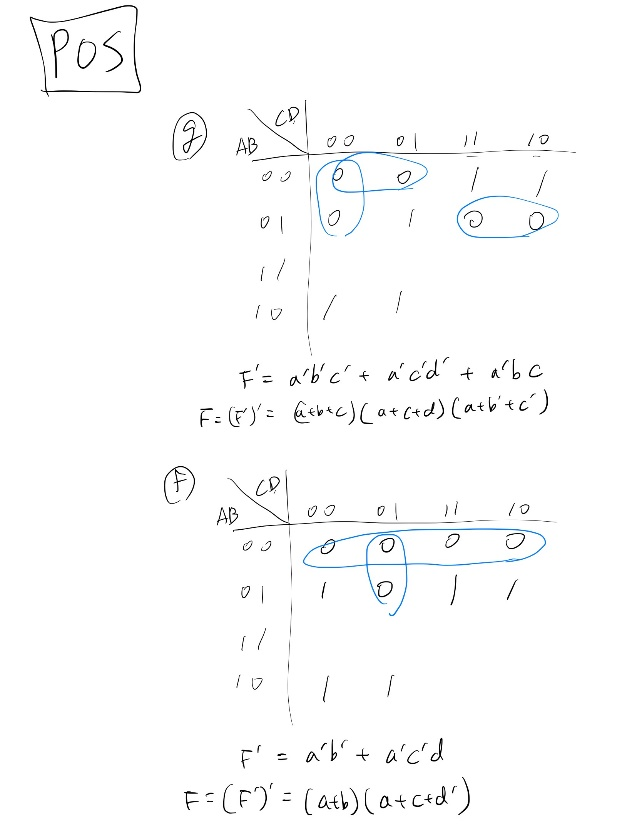 POS
g
CD
AB 00 01 11 10
00 0 0 1 1
01 0 1 0 0
11
10 1 1
F' = a'b'c' + a'c'd' + a'bc
F=(F')' = (a+b+c)(a+c+d)(a+b'+c')
F
CD
AB 00 01 11 10
00 0 0 0 0
01 1 0 1 1
11
10 1 1
F' = a'b' + a'c'd
F=(F')' = (a+b)(a+c+d')